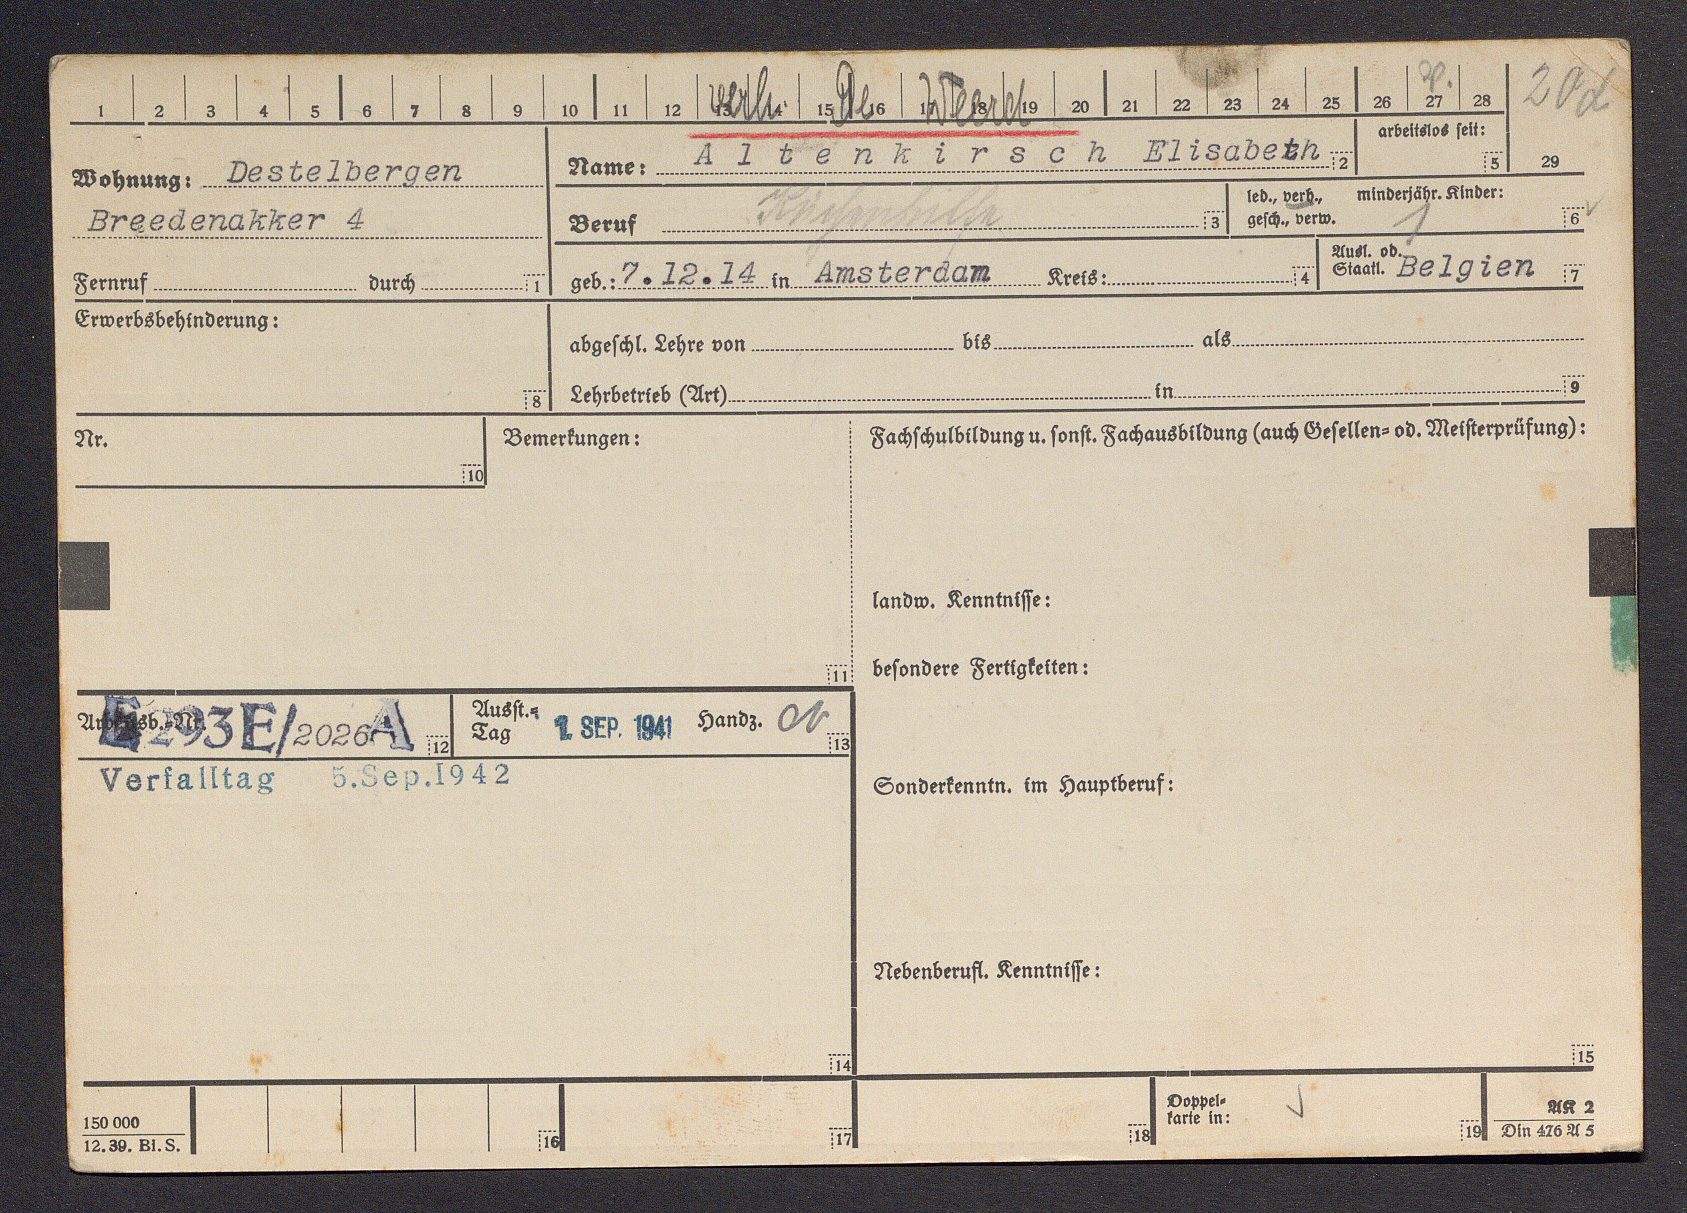 1 2 3 4 5 6 7 8 9 10 11 12 13 14 15 16 17 18 19 20 21 22 23 24 25 26 27 28
verh. De Weerd
20d
arbeitslos seit: 5 29
Wohnung: Destelbergen
Name: Altenkirsch Elisabeth 2
Breedenakker 4
Beruf Küchenhilfe 3
led., verh., gesch., verw.
minderjähr. Kinder: 1 6
Fernruf durch 1
geb.: 7.12.14 in Amsterdam Kreis: 4
Ausl. od. Staatl. Belgien 7
Erwerbsbehinderung: 8
abgeschl. Lehre von bis als
Lehrbetrieb (Art) in 9
Nr. 10
Bemerkungen: 11
Fachschulbildung u. sonst. Fachausbildung (auch Gesellen= od. Meisterprüfung):
landw. Kenntnisse:
besondere Fertigkeiten:
Arbeitsb.-Nr. 293E/2026A 12
Ausst.= Tag 1. SEP. 1941 Handz. 13
Verfalltag 5.Sep.1942
Sonderkenntn. im Hauptberuf:
Nebenberufl. Kenntnisse:
14
15
150 000
12. 39. Bl. S.
16 17 18
Doppel= karte in: 19
AK 2
Din 476 A 5